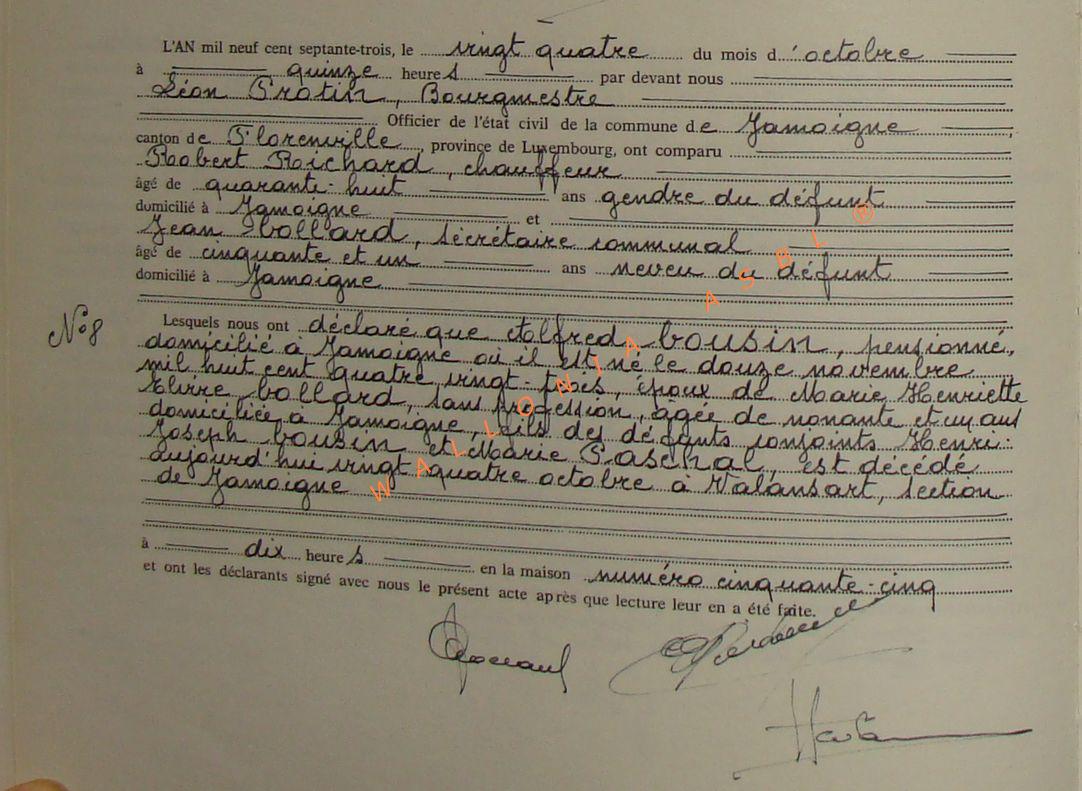 L'AN mil neuf cent septante-trois, le vingt quatre du mois d'octobre
à quinze heures par devant nous
Léon Protin, Bourgmestre
Officier de l'état civil de la commune de Jamoigne,
canton de Florenville, province de Luxembourg, ont comparu
Robert Richard, chauffeur
âgé de quarante-huit ans gendre du défunt
domicilié à Jamoigne et
Jean Collard, secrétaire communal
âgé de cinquante et un ans neveu du défunt
domicilié à Jamoigne
N°8
Lesquels nous ont déclaré que Alfred Cousin, pensionné,
domicilié à Jamoigne où il est né le douze novembre
mil huit cent quatre vingt-, époux de Marie Henriette
Elvire Collard, sans profession, agée de nonante et un ans
domiciliée à Jamoigne, fils des défunts conjoints Henri-
Joseph Cousin et Marie Paschal, est décédé
aujourd'hui vingt quatre octobre à Valansart, section
de Jamoigne
à dix heures en la maison numéro cinquante-cinq
et ont les déclarants signé avec nous le présent acte après que lecture leur en a été faite.
WALLONIA ASBL ®